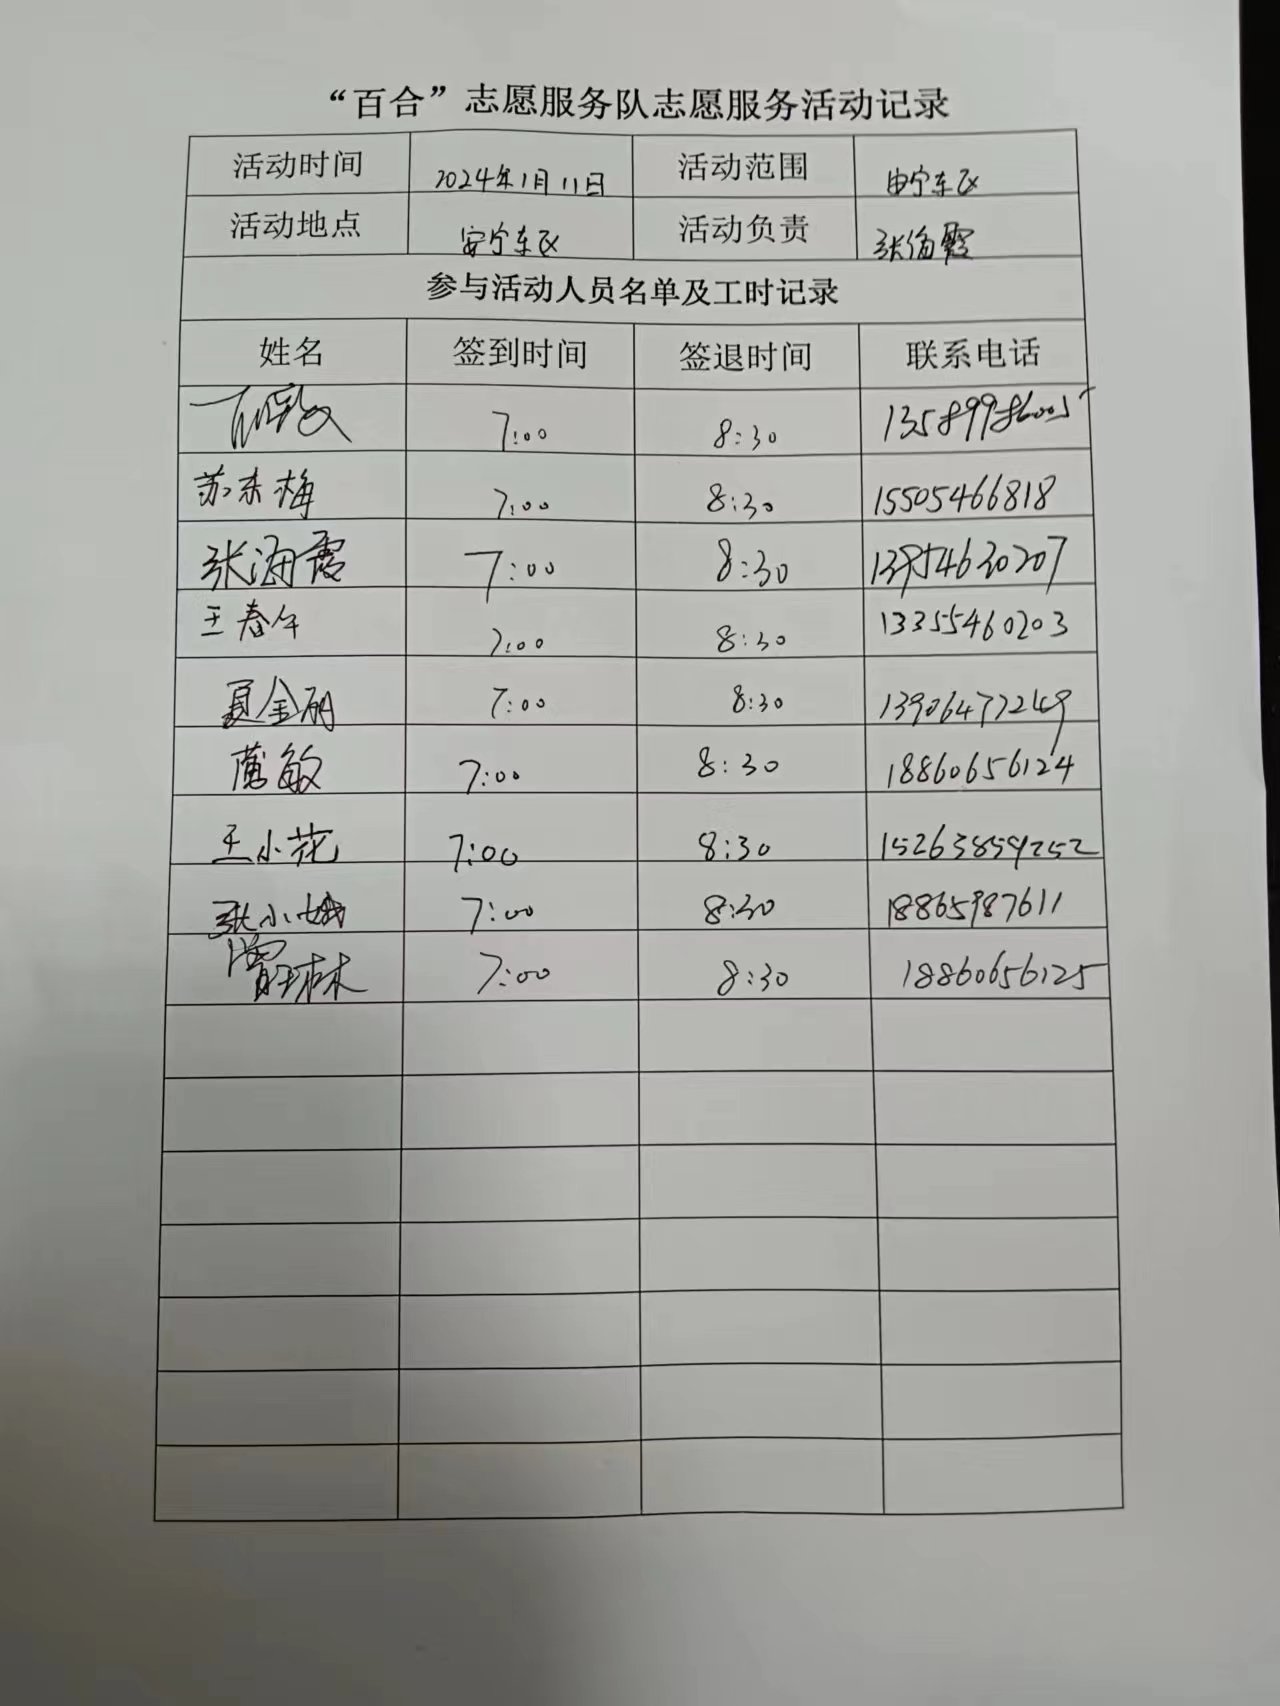 “百合”志愿服务队志愿服务活动记录
活动时间 2024年1月11日 活动范围 安宁东区
活动地点 安宁东区 活动负责 张海霞
参与活动人员名单及工时记录
姓名 签到时间 签退时间 联系电话
7:00 8:30
苏东梅 7:00 8:30 15505466818
张海霞 7:00 8:30 13954630207
王春午 7:00 8:30 13355460203
夏金丽 7:00 8:30 13906477249
敏 7:00 8:30 18860656124
王小花 7:00 8:30 15263859252
张小娥 7:00 8:30 18865987611
7:00 8:30 18860656125